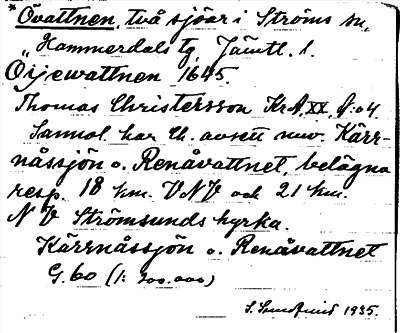 * Övattnen, två sjöar i Ströms sn,
Hammerdals tg, Jämtl. l.
"Öijewattnen 1645.
Thomas Christersson Kr.A, XX, A:04
Sannol. har Ch. avsett nuv. Kärr-
nåssjön o. Renåvattnet, belägna
resp. 18 km. VNV och 21 km.
NV Strömsunds kyrka.
Kärrnåssjön o. Renåvattnet
G.60 (1:200.000)
1935.